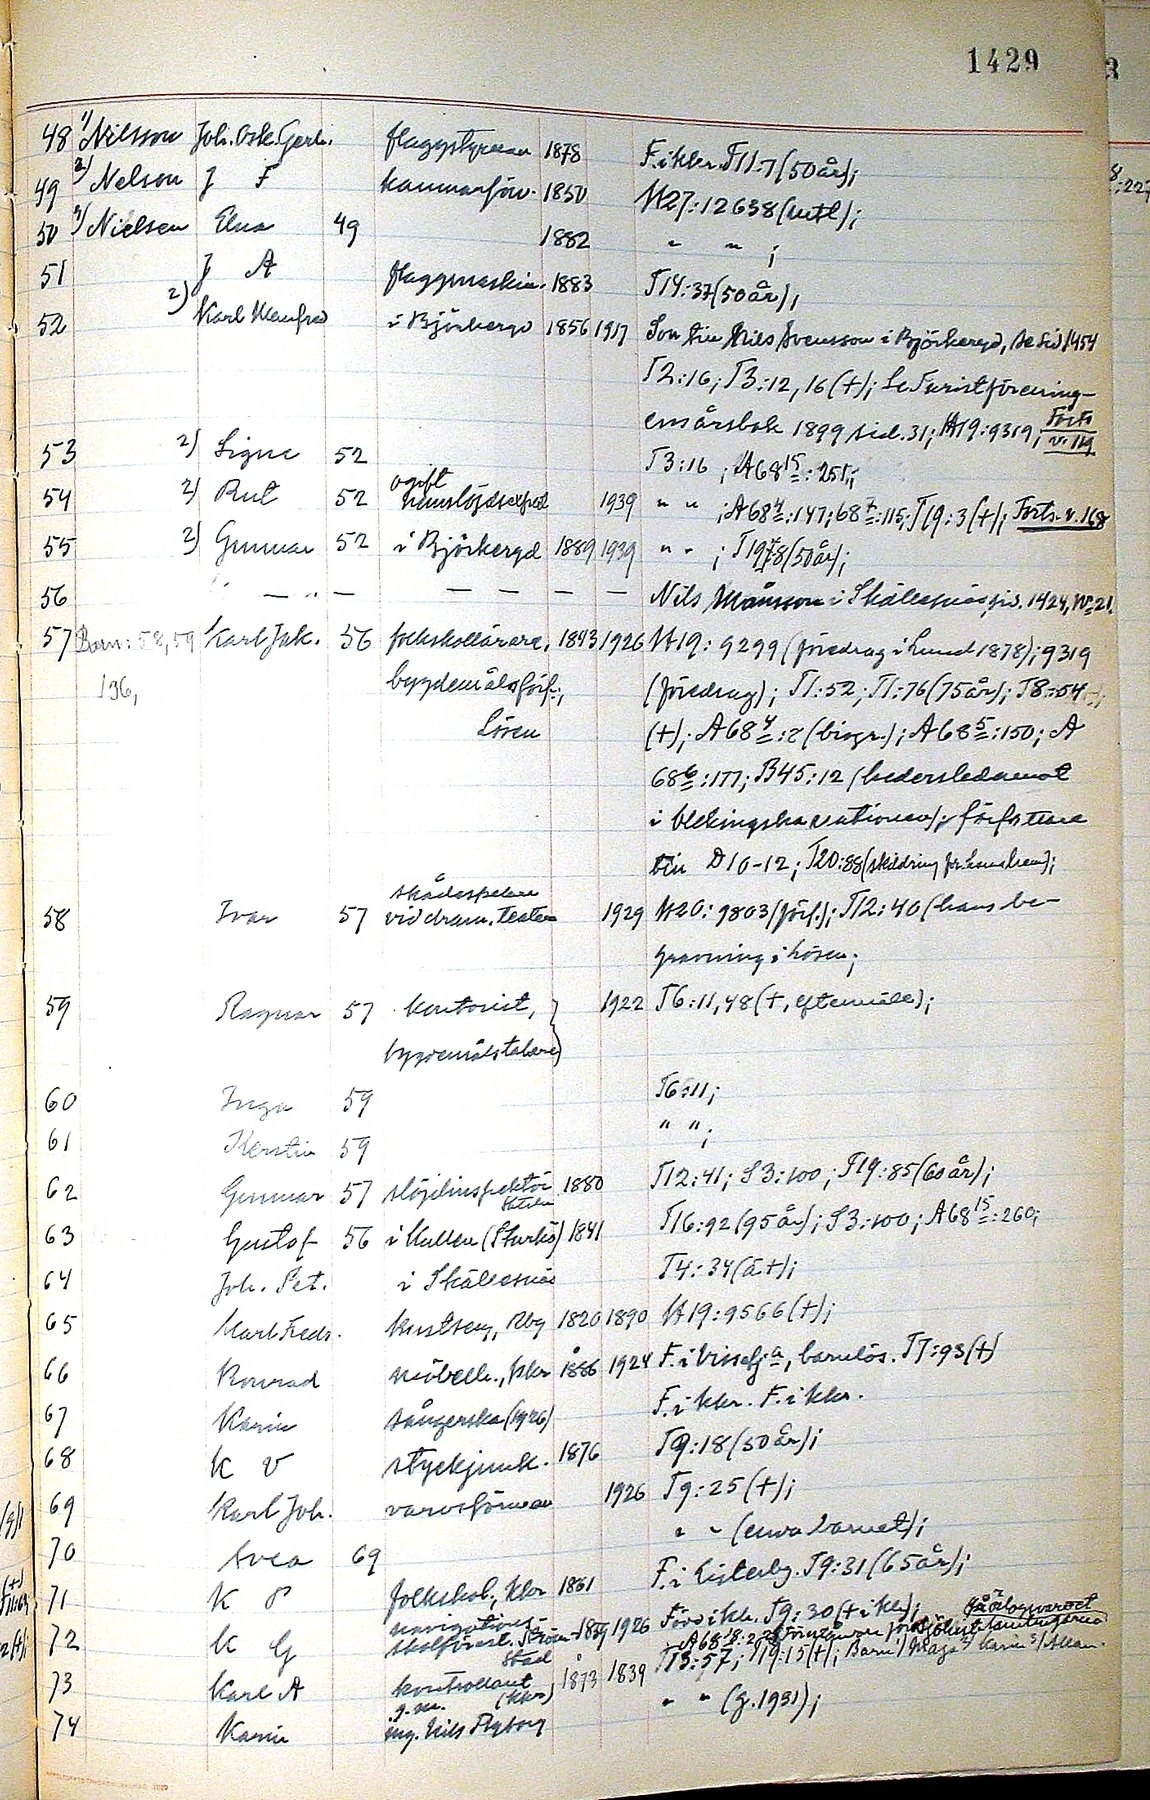 1429
48 1) Nilsson Joh. Osk. Gerh. flaggstyrman 1878 F. i Kkr. T11:7 (50 år);
49 2) Nelson J F kammarförv. 1850 H27:12638 (utfl);
50 3) Nielsen Elna 49 1882 " " ;
51 J A flaggmaskin. 1883 T14:37 (50 år);
52 2) Karl Manfred i Björkeryd 1856 1917 Son till Nils Svensson i Björkeryd, se sid 1454
T2:16; T3:12, 16 (+); Se Turistförening-
ens årsbok 1899 sid. 31; H19:9319; Forts
n. 119
53 2) Signe 52 T3:16 ; A68 15:251;
54 2) Rut 52 ogift
hemslöjdsexped 1939 " " ; A68 4:147; 68 7:115; T19:3 (+); Forts. n. 168
55 2) Gunnar 52 i Björkeryd 1889 1939 " " ; T19:78 (50 år);
56 — " — — — — — — Nils Månsson i Skällenäs sid. 1424, No 21.
57 Barn: 58, 59 Karl Jak. 56 folkskollärare, 1843 1926 H19:9299 (föredrag i Lund 1878); 9319
136, bygdemålsförf.; (föredrag); T1:52; T1:76 (75 år); T8:54
Lösen (+); A68 4:2 (biogr.); A68 5:150; A
68 6:177; B45:12 (hedersledamot
i blekingska nationen); författare
till D10-12; T20:88 (skildring för
58 Ivar 57 skådespelare
vid dram. teatern 1929 H20:9803 (förf.); T12:40 (hans be-
gravning i Lösen;
59 Ragnar 57 kontorist, 1922 T6:11, 48 (+, eftermäle);
bygdemålstalare
60 Inga 59 T6:11;
61 Kerstin 59 " ";
62 Gunnar 57 slöjdinspektör 1880 T12:41; S3:100; T19:85 (60 år);
63 Gustaf 56 i Kullen (Sturkö) 1841 T16:92 (95 år); S3:100; A68 15:260;
64 Joh. Pet. i Skällenäs T4:34 (ä+);
65 Karl Fredr. kustserg, Rby 1820 1890 H19:9566 (+);
66 Konrad möbelh., Kkr 1886 1924 F. i Vissefj:a, barnlös. T7:93 (+)
67 Karin sångerska (1926) F. i Kkr. F. i Kkr.
68 K V styckjunk. 1876 T9:18 (50 år);
69 Karl Joh. varvsförman 1926 T9:25 (+);
70 Svea 69 " " (enva barnet);
71 K P folkskol., Kkr 1861 F. i Listerby. T9:31 (65 år);
72 K G navigations-
skolförest. Ström-
stad 1859 1926 Född i Kkr. T9:30 (+ i Kkr);
73 Karl A kontrollant
(Kkr) 1873 1839 T13:57; T19:15 (+); Barn: 1) Maja 2) Karin 3) Allan.
74 Karin g.m.
ing. Nils Nyborg " " (g. 1931);